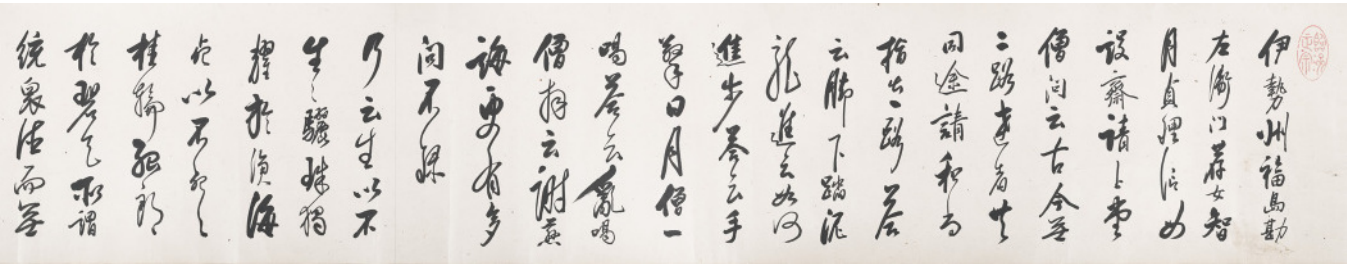 伊勢州福島勘
左衛门葬女智
月貞理信女
設齋請上堂
僧问云古今並
二路達者共
同途請和尚
指出一路答
云脚下踏泥
龍進云如何
進步答云手
擎日月僧一
喝答云亂喝
僧拜云謝慈
誨更有多
问不録
乃云生以不
生之驪珠獨
耀於溟海
死以不死之
桂輪孤朗
於碧天所謂
統衆法而無